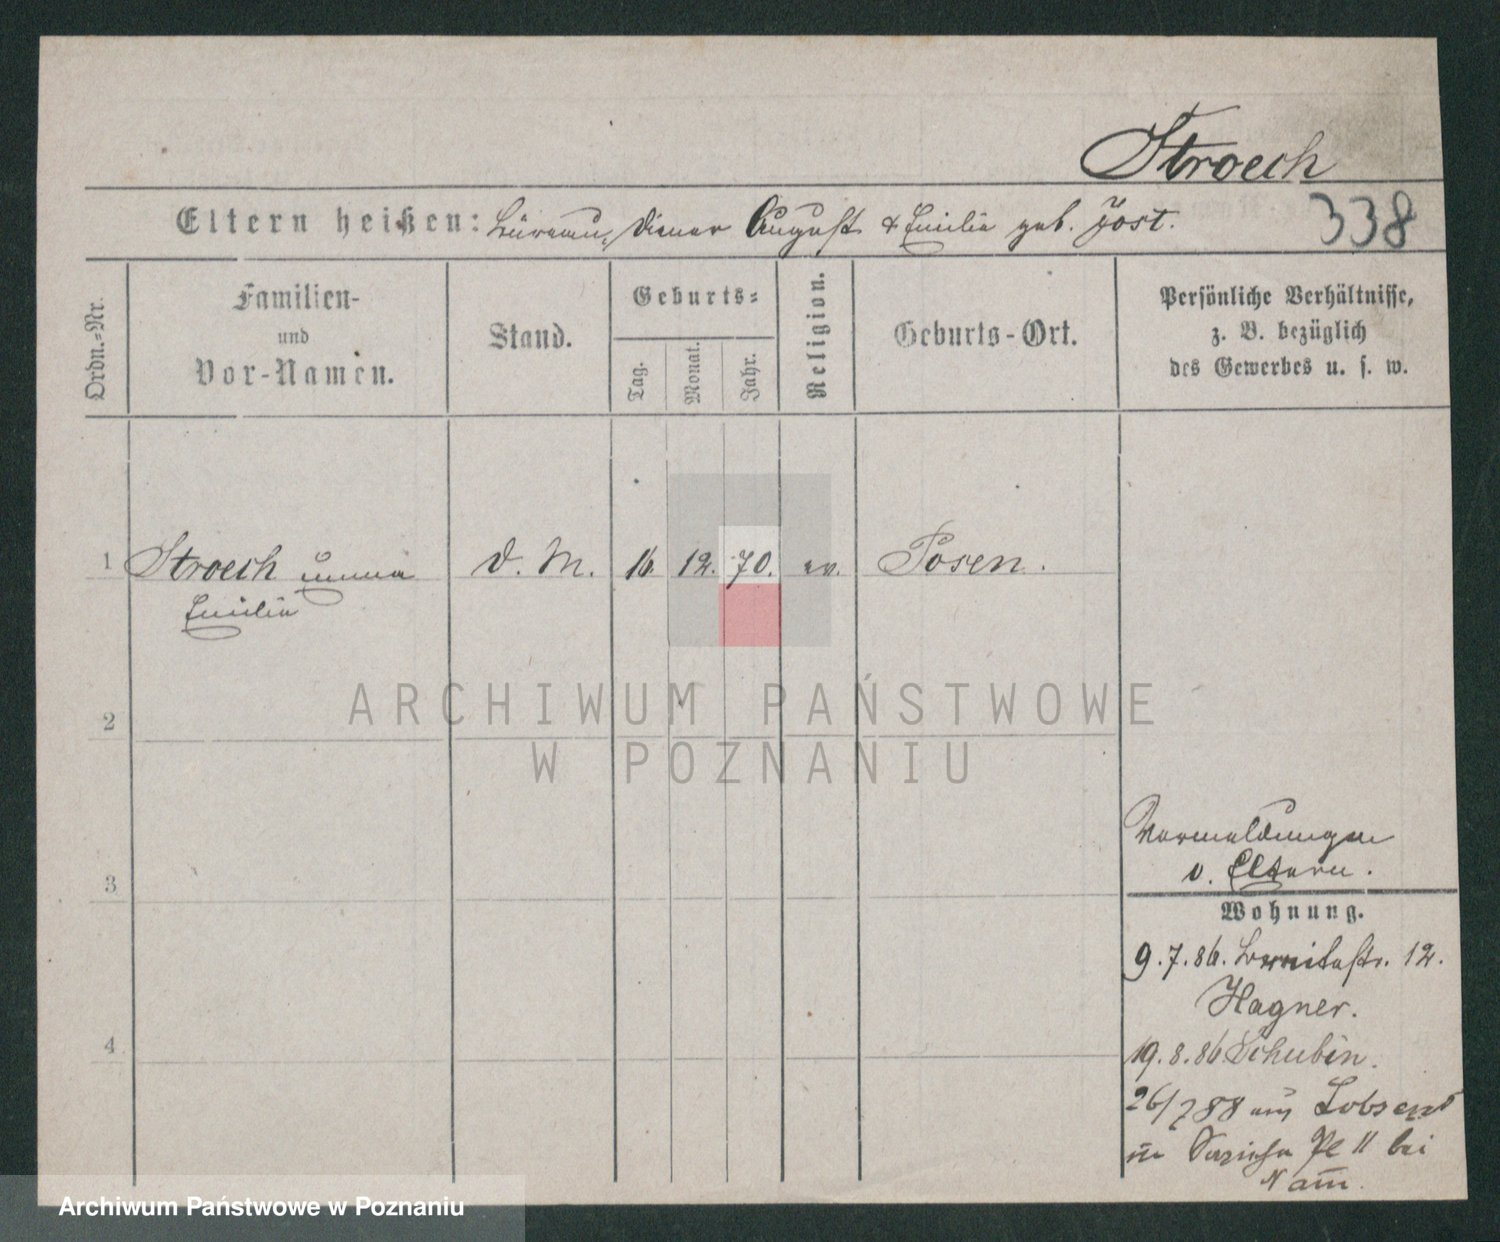 Stroech
Eltern heißen: Büreau, Diener August & Emilie geb. Jost.
338
Ordn.=Nr.
Familien-
und
Vor-Namen.
Stand.
Geburts=
Tag.
Monat.
Jahr.
Religion.
Geburts-Ort.
Persönliche Verhältnisse,
z. B. bezüglich
des Gewerbes u. s. w.
1 Stroech Emma D. M. 16 12. 70. ev. Posen.
Emilie
2
3
4
ARCHIWUM PAŃSTWOWE
W POZNANIU
Vermeldungen
v. Eltern.
Wohnung.
9.7.86. 12.
Hagner.
19.8.86 Schubin.
26/7 88 aus Lobsens
Pl 11 bei
Archiwum Państwowe w Poznaniu